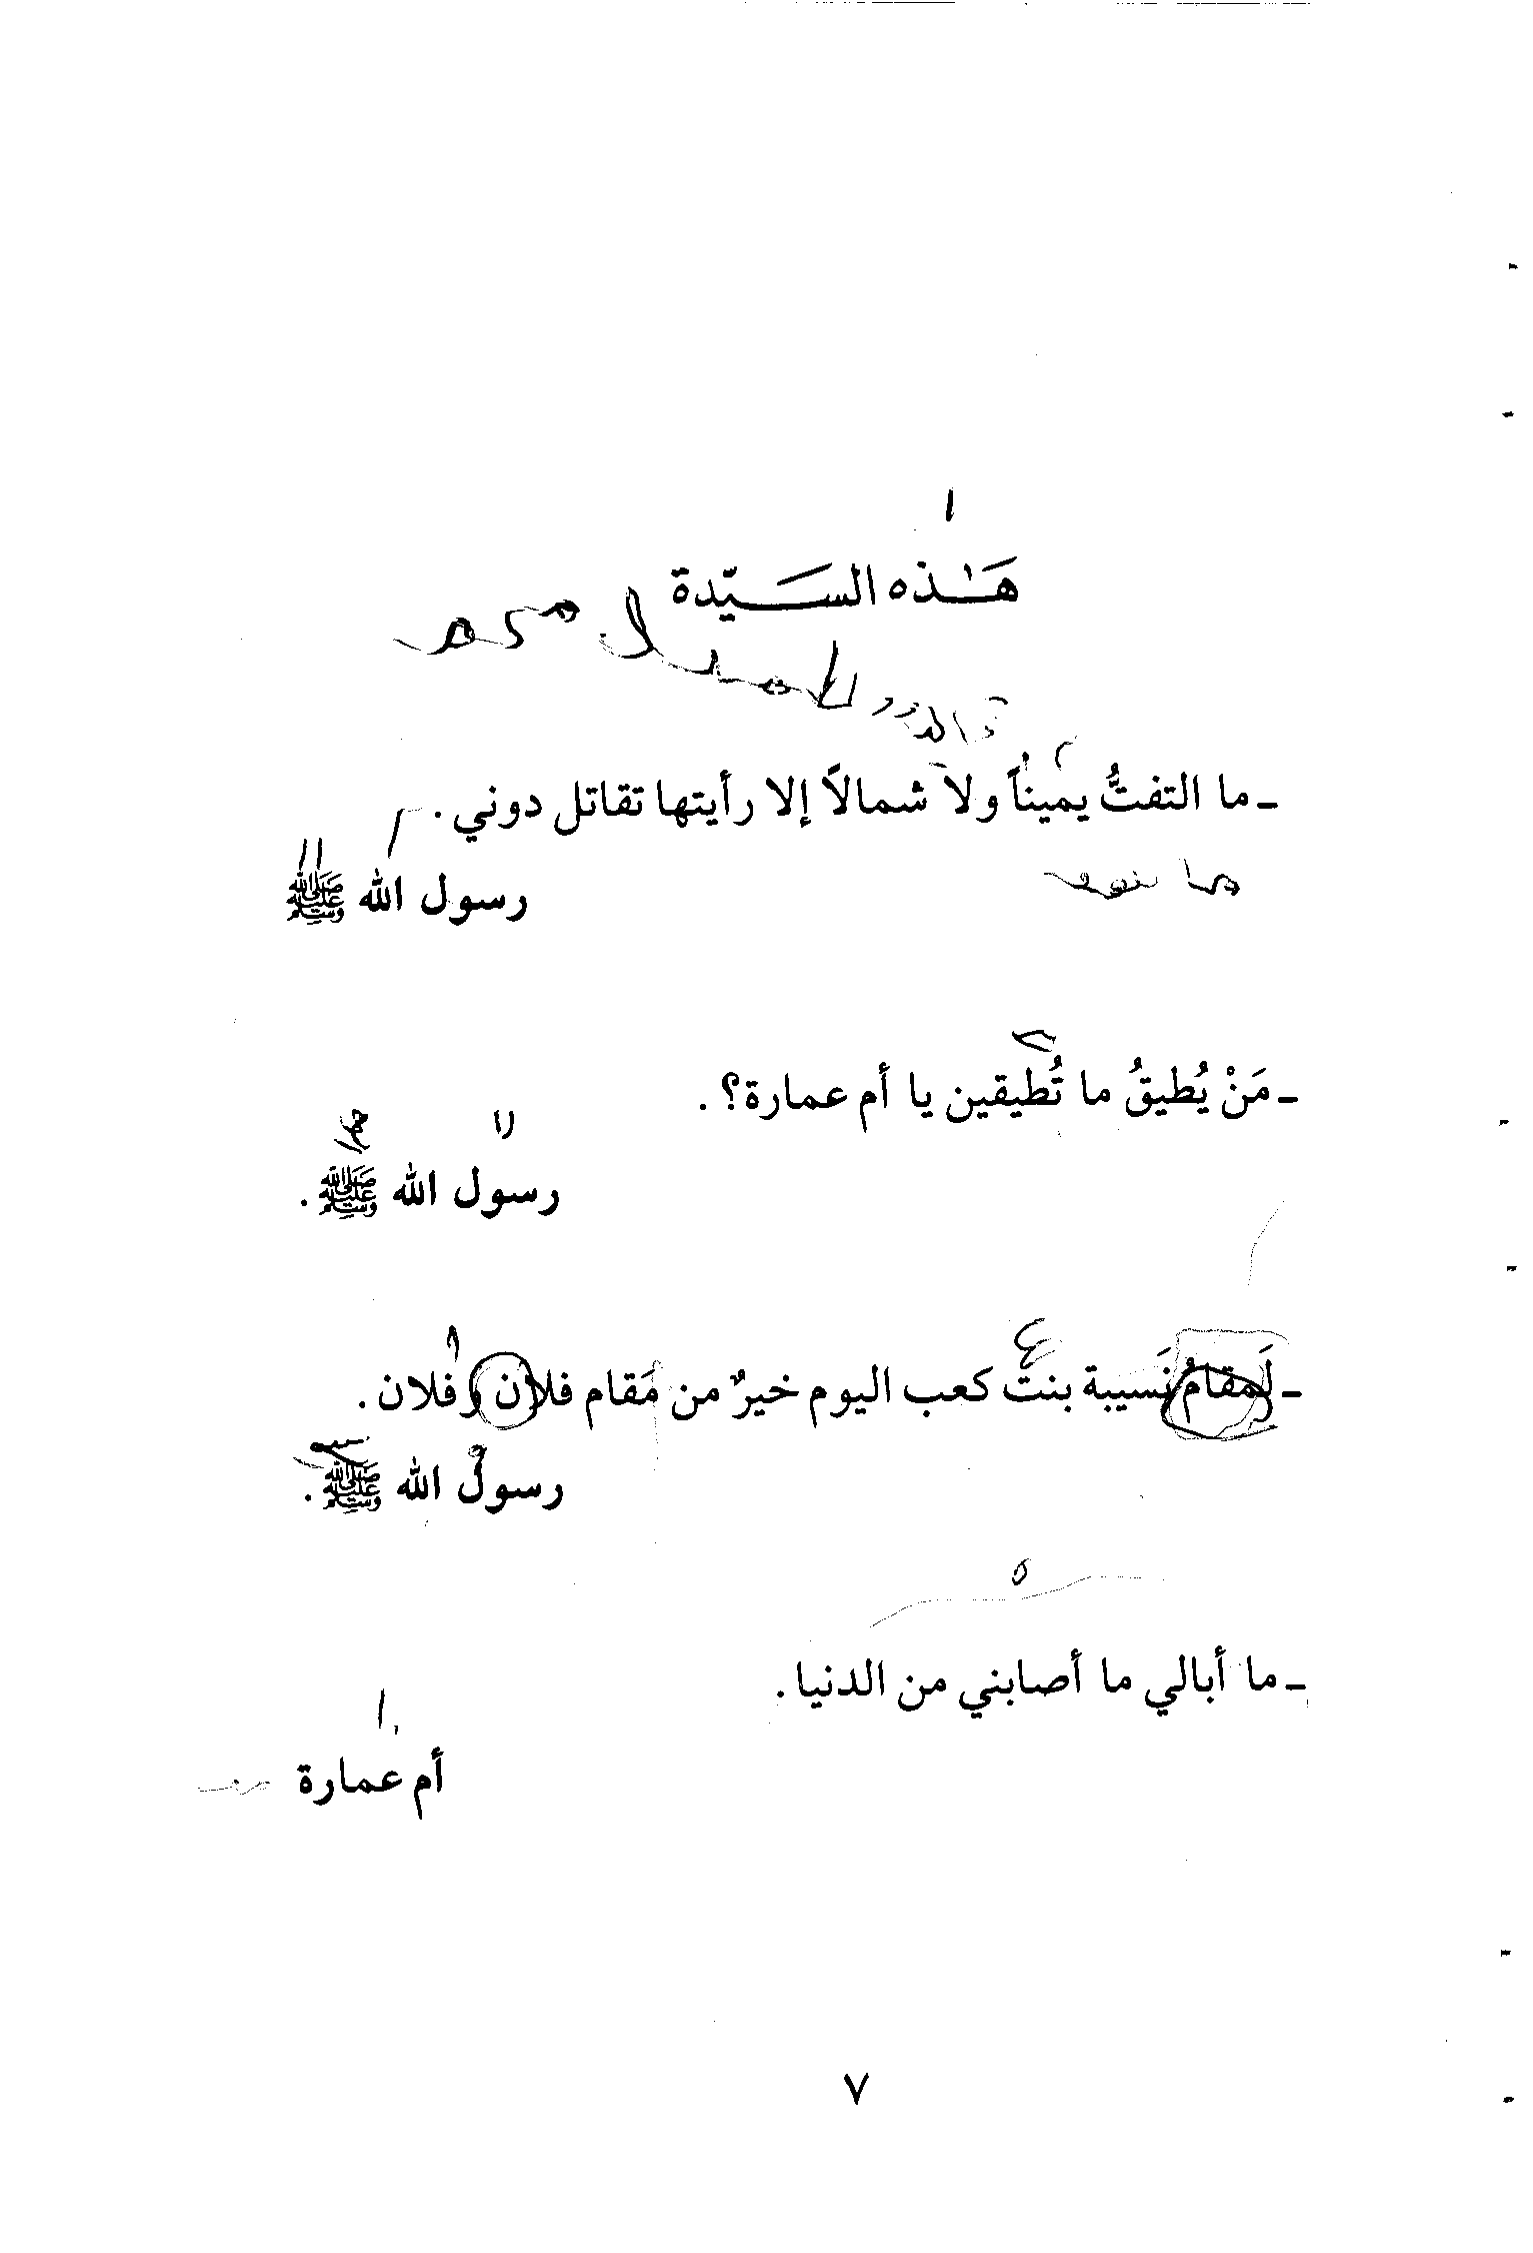 هَـٰذه السَيّدة
ـ ما التفتُّ يميناً ولا شمالاً إلا رأيتها تقاتل دوني.
رسول الله ﷺ
ـ مَنْ يُطيقُ ما تُطيقين يا أم عمارة؟.
رسول الله ﷺ.
ـ لَمقامُ نَسيبة بنت كعب اليوم خيرٌ من مَقام فلان وفلان.
رسول الله ﷺ.
ـ ما أبالي ما أصابني من الدنيا.
أم عمارة
٧